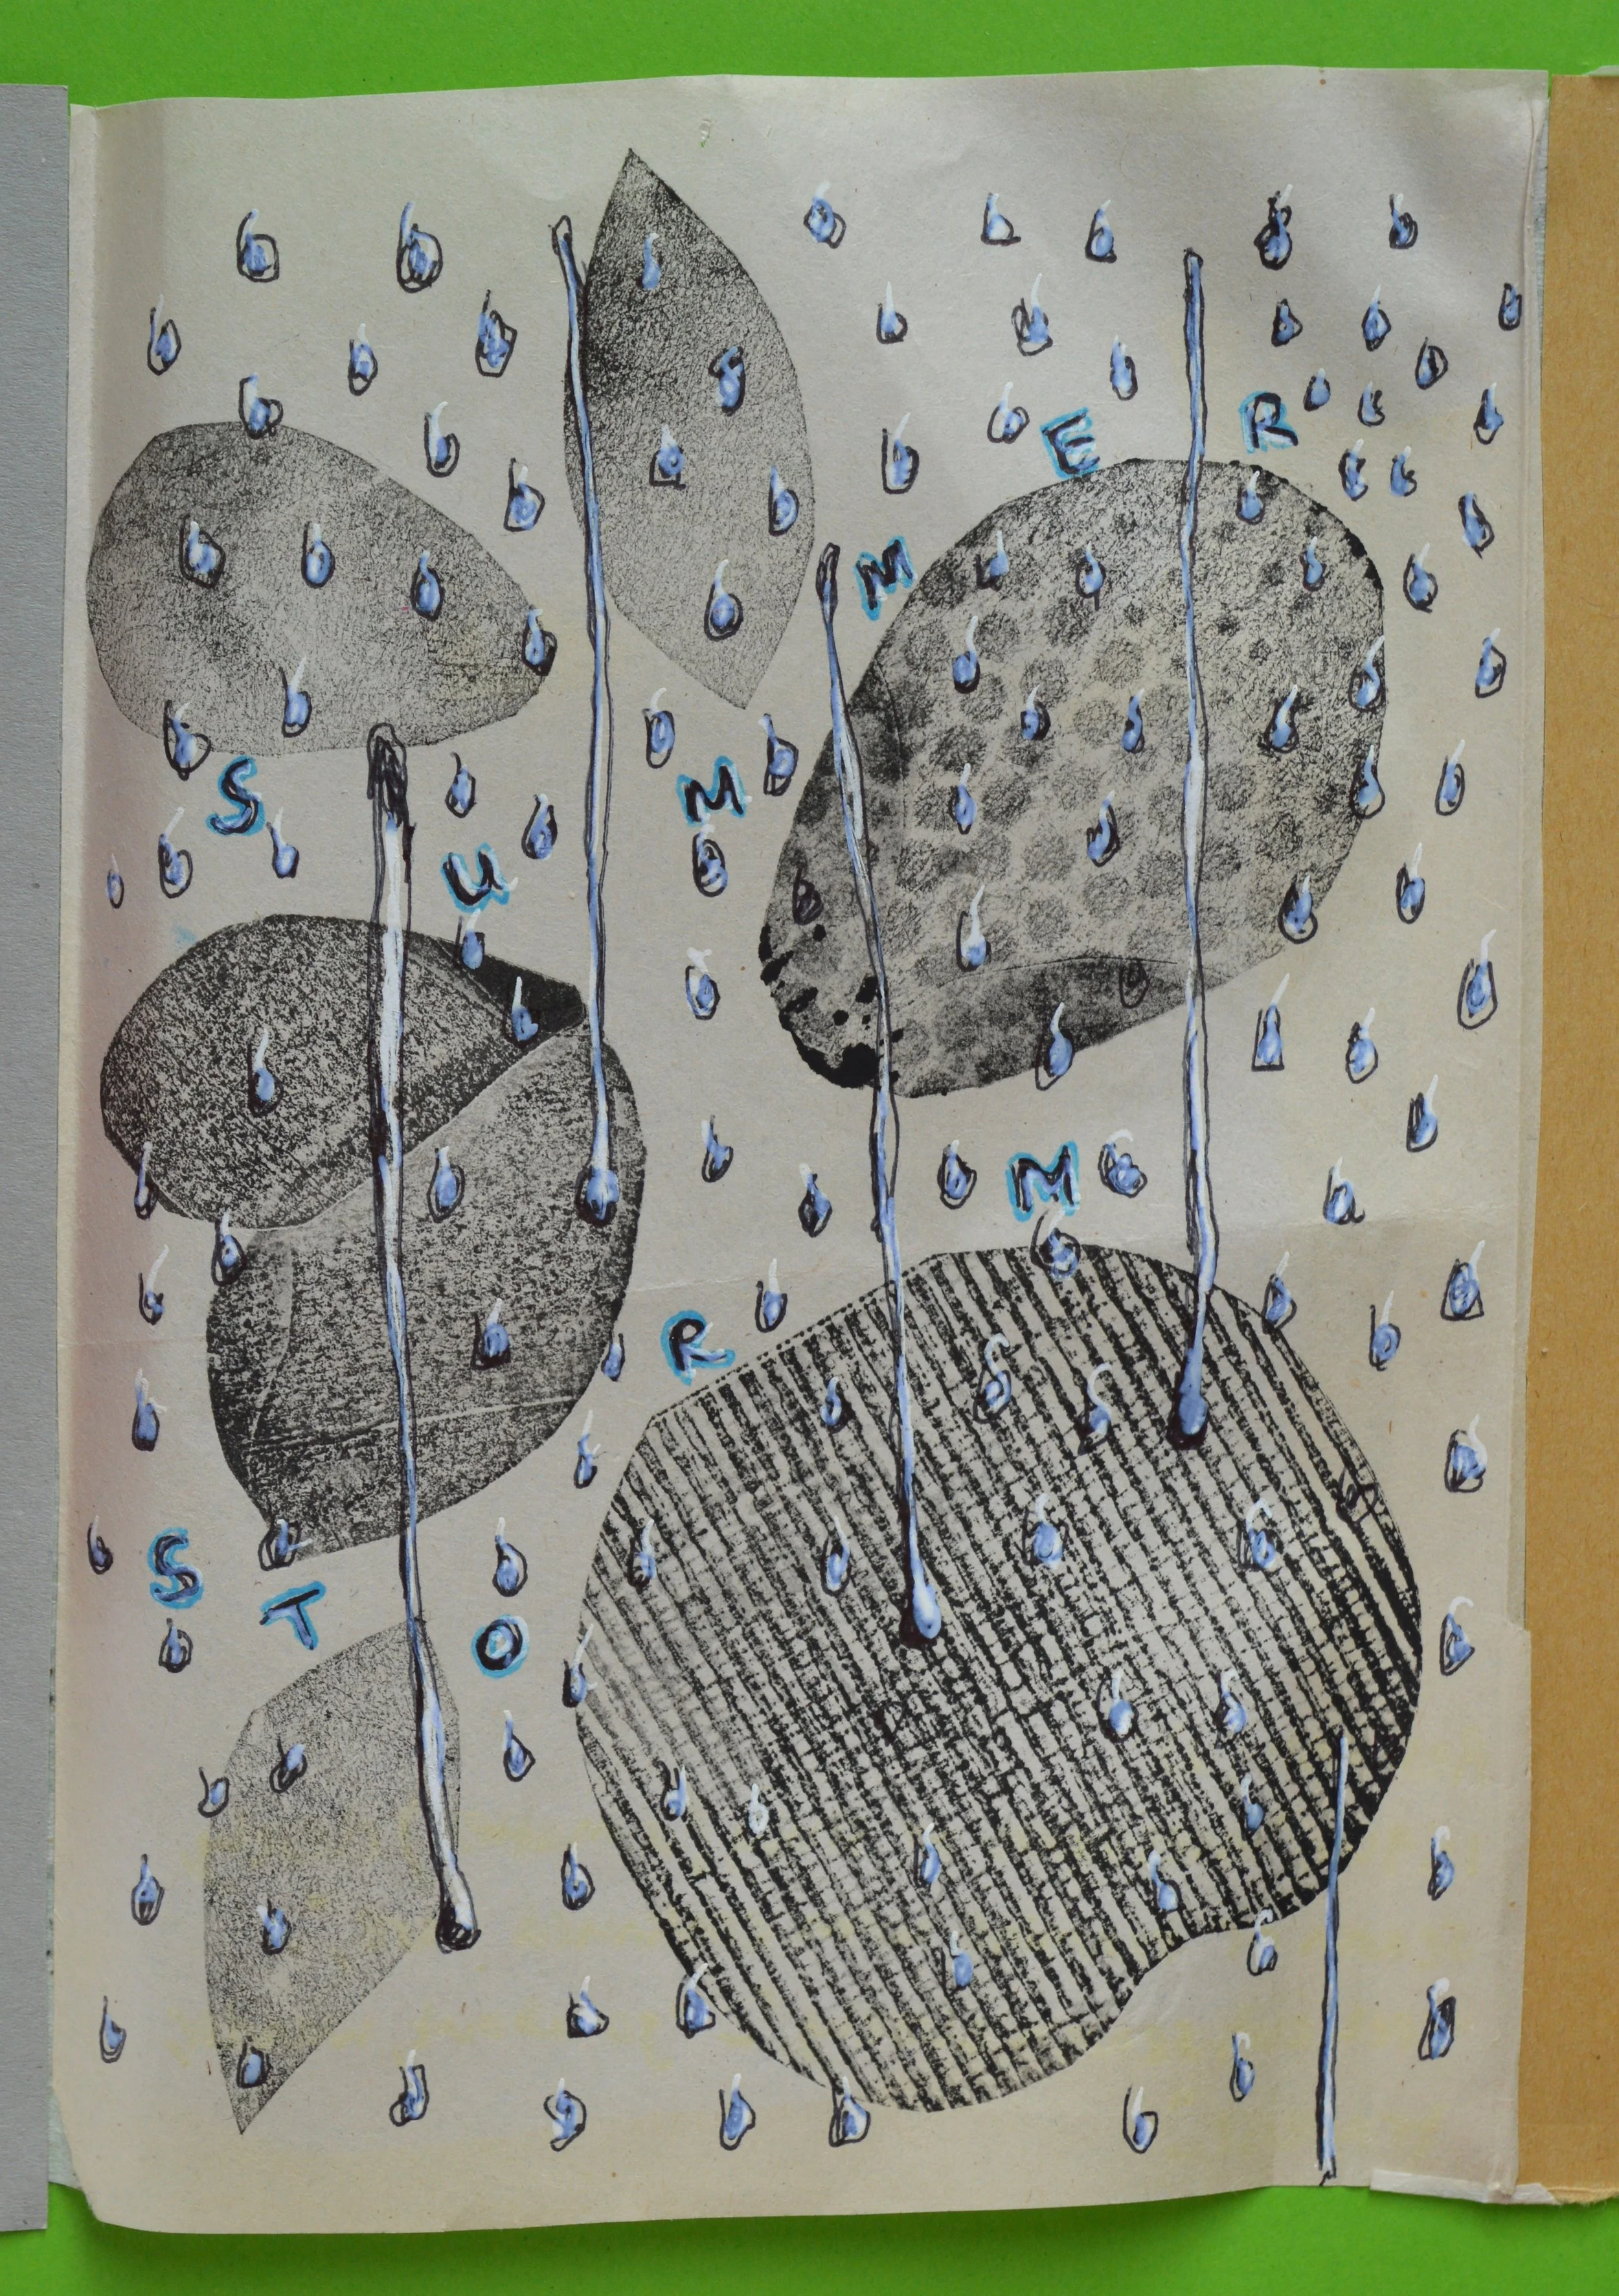 SUMMER
STORM